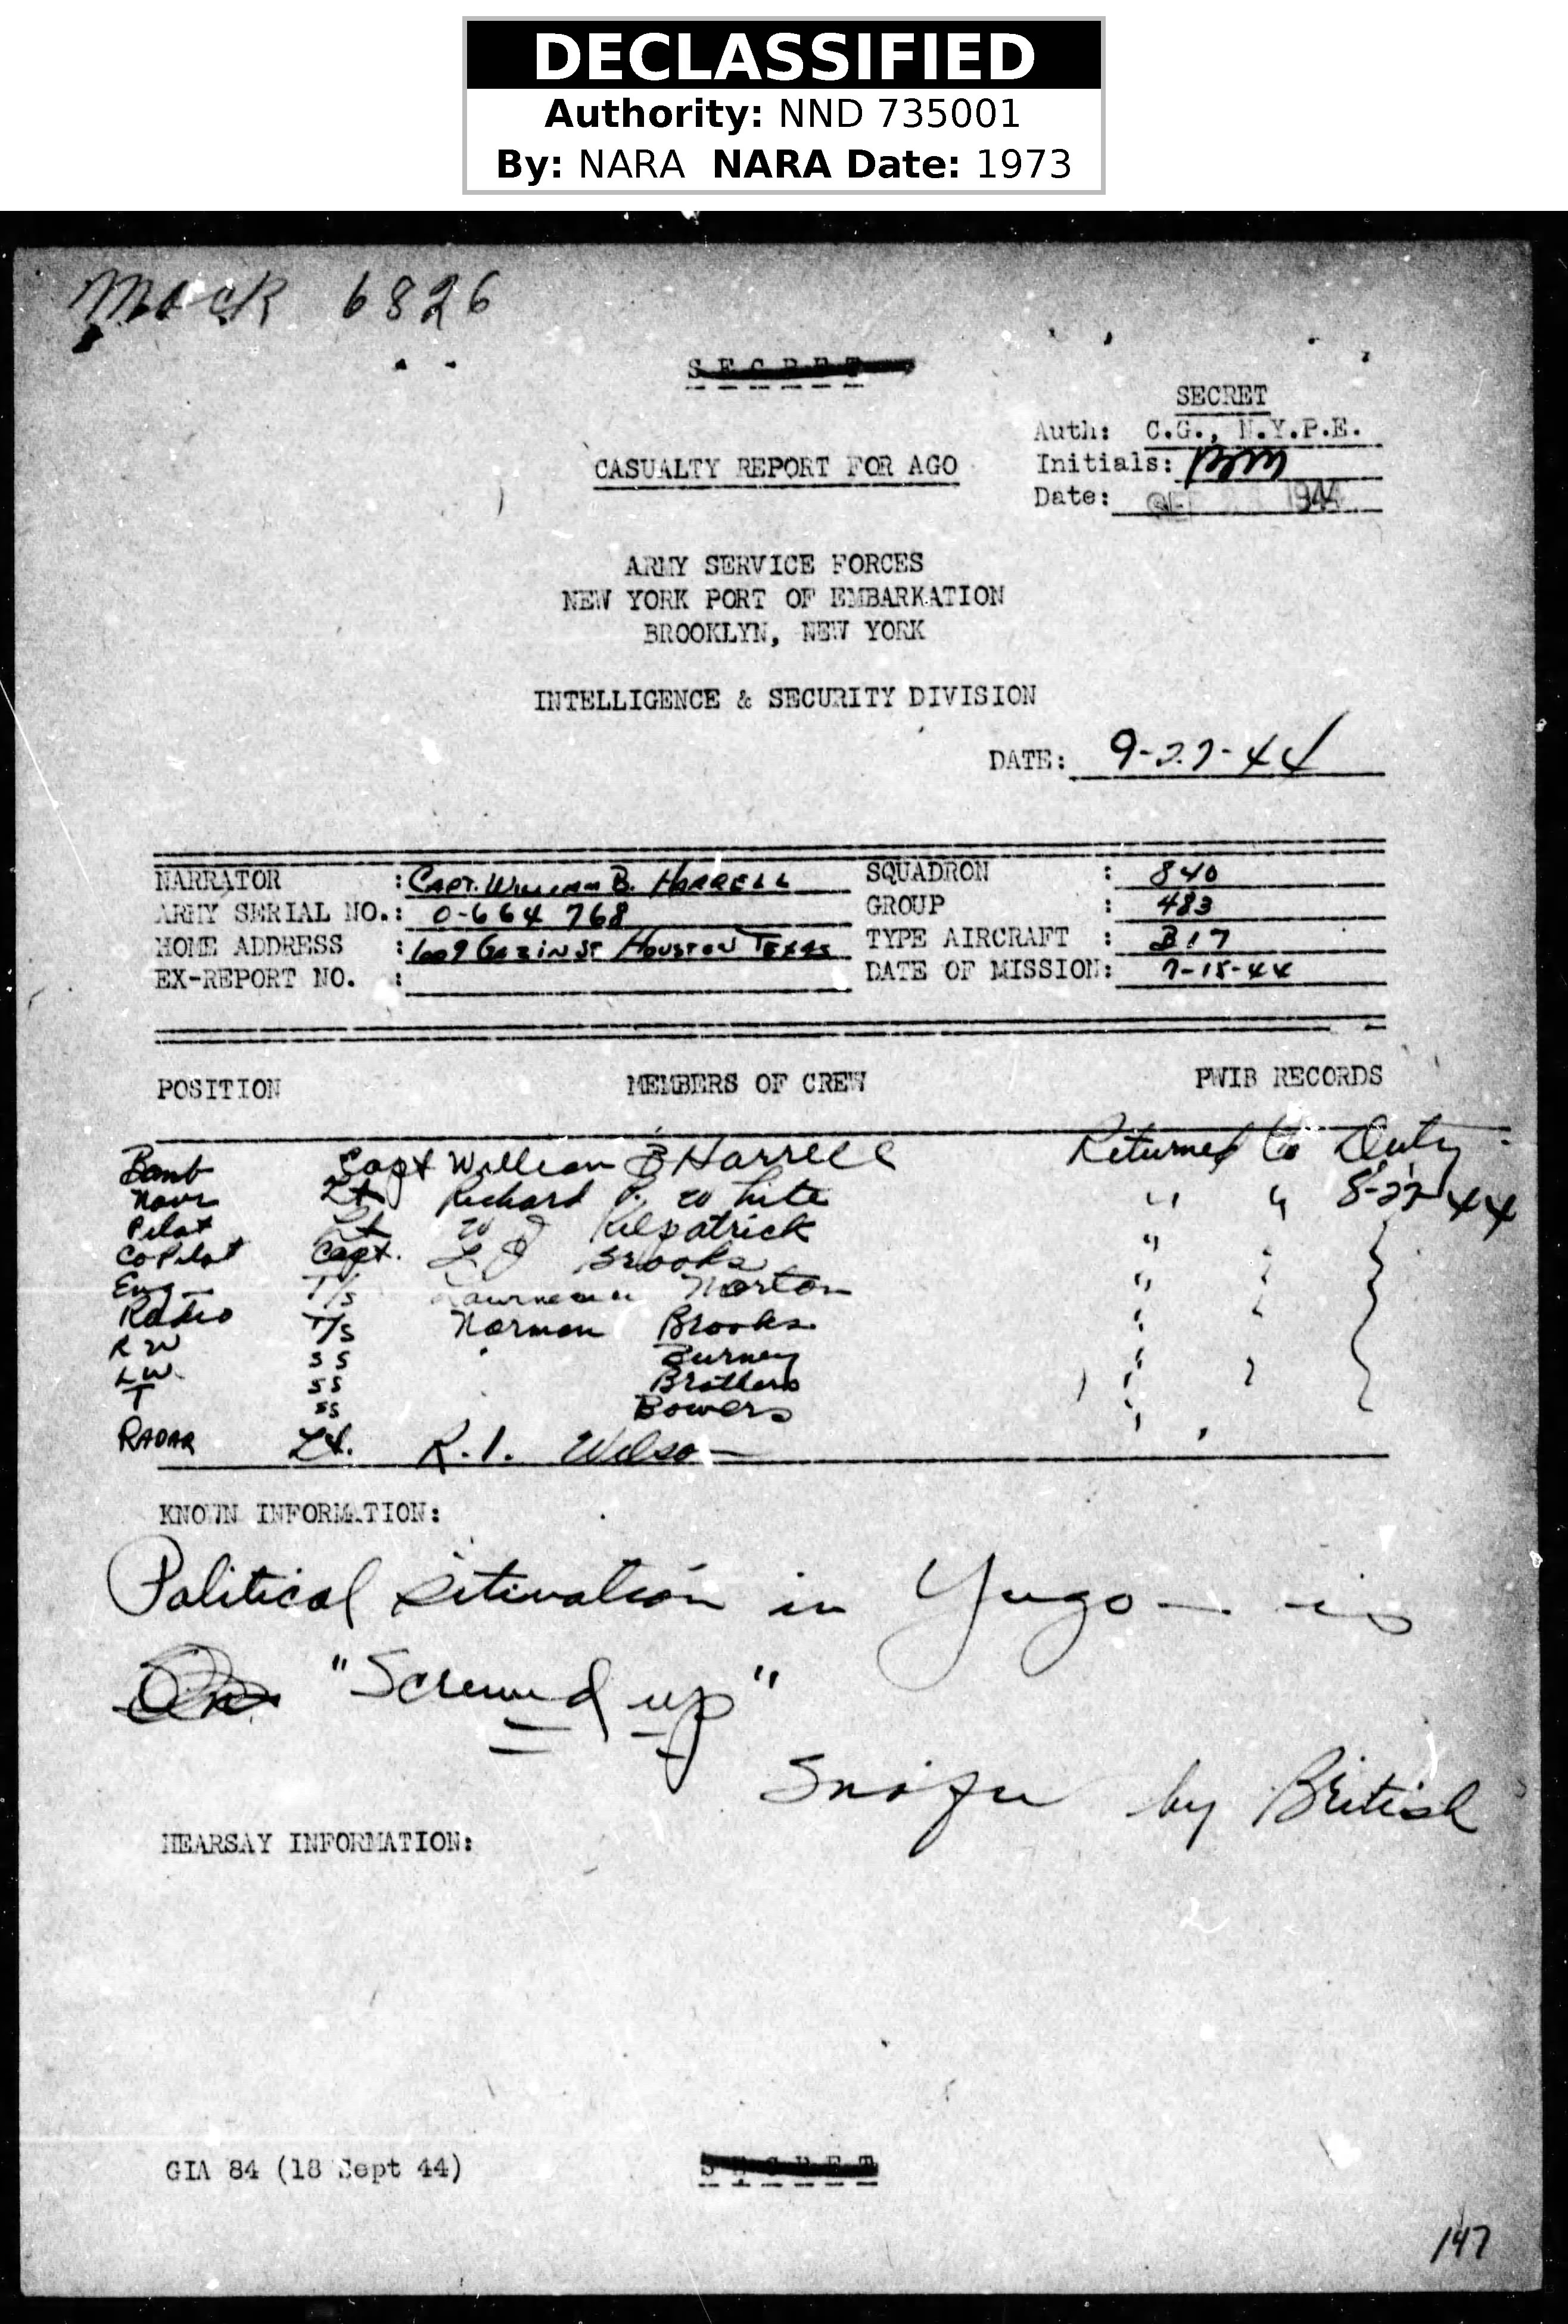 DECLASSIFIED
Authority: NND 735001
By: NARA NARA Date: 1973
6826
SECRET
SECRET
Auth: C.G., N.Y.P.E.
CASUALTY REPORT FOR AGO
Initials: BM
Date: 1944
ARMY SERVICE FORCES
NEW YORK PORT OF EMBARKATION
BROOKLYN, NEW YORK
INTELLIGENCE & SECURITY DIVISION
DATE: 9-27-44
NARRATOR : CAPT. WILLIAM B. HARRELL SQUADRON : 840
ARMY SERIAL NO.: 0-664 768 GROUP : 483
HOME ADDRESS : 1609 ST HOUSTON TEXAS TYPE AIRCRAFT : B17
EX-REPORT NO. : DATE OF MISSION: 7-15-44
POSITION MEMBERS OF CREW PWIB RECORDS
Bomb Capt William B Harrell Returned to Duty
Navr Lt Richard P. White " " 8-27-44
Pilot Lt W J Kilpatrick "
CoPilot Capt. L J Brooks "
Eng T/S Norton "
Radio T/S Norman Brooks "
RW SS Burney "
LW SS Brothers "
T SS Bowers "
RADAR Lt. R.I. Wilson
KNOWN INFORMATION:
Political situation in Yugo— is
"Screwed up"
Snafu by British
HEARSAY INFORMATION:
GIA 84 (18 Sept 44)
SECRET
147